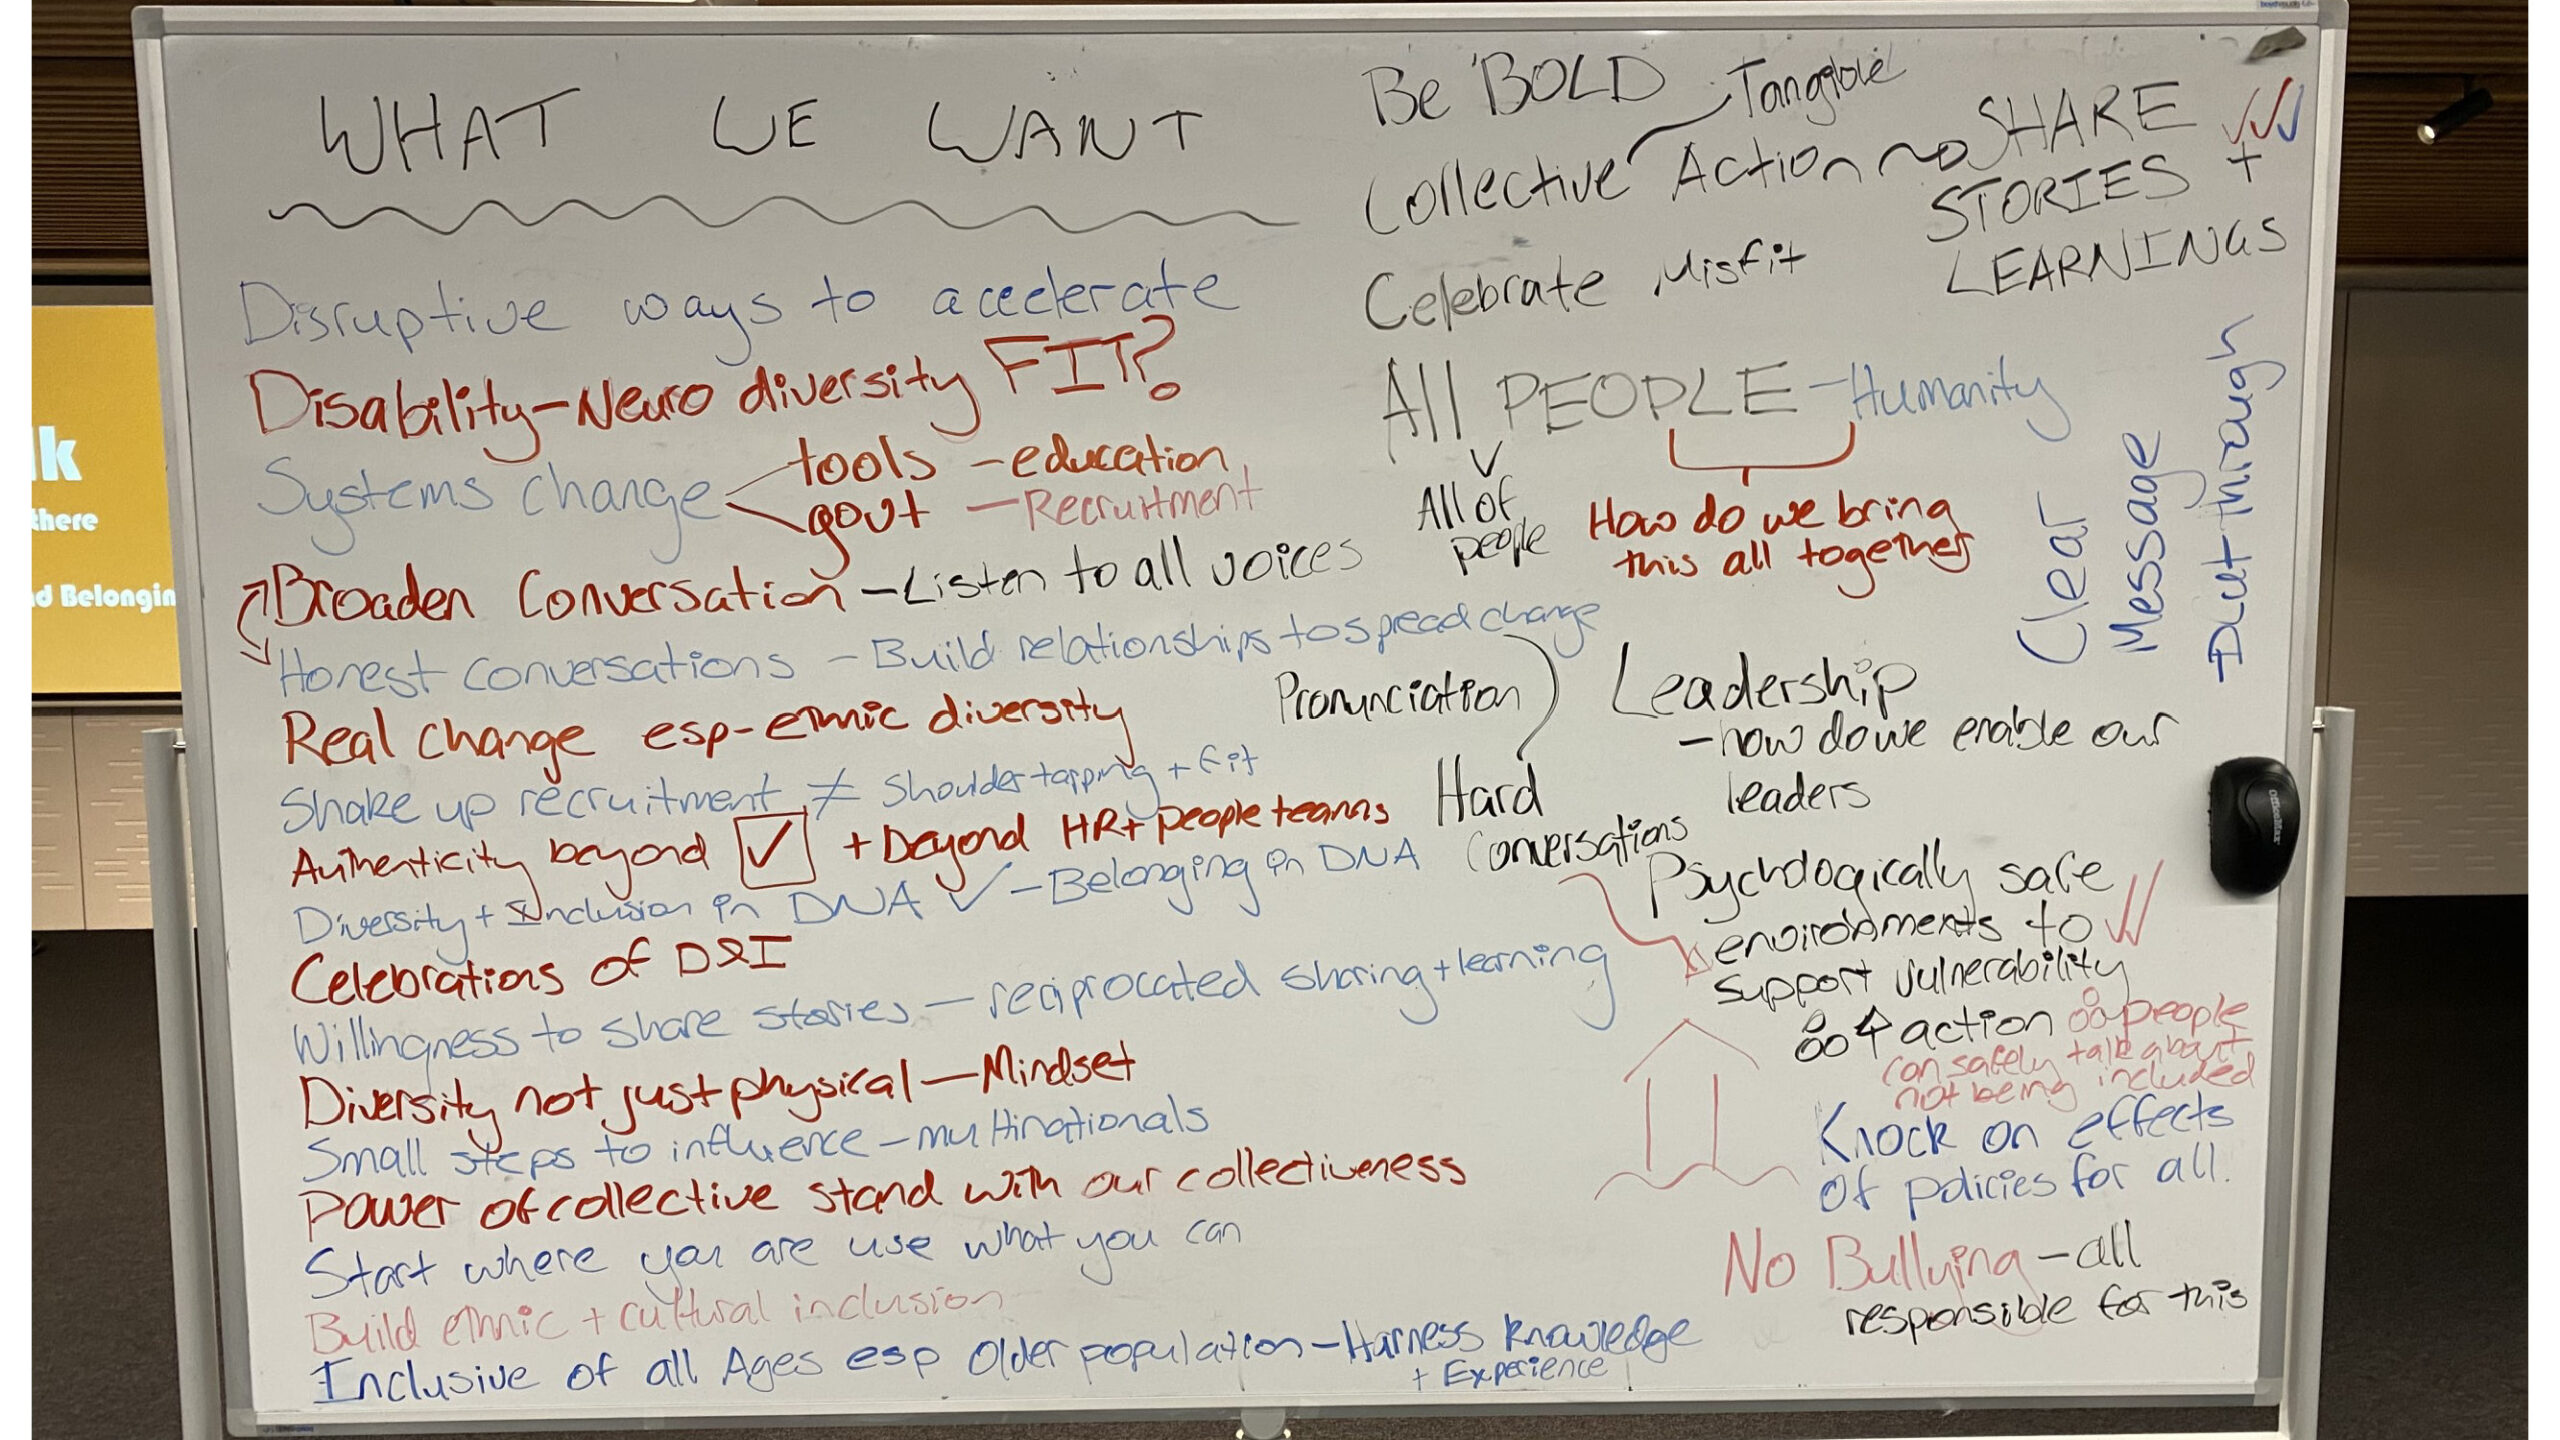 WHAT WE WANT
Disruptive ways to accelerate
Disability-Neuro diversity FIT?
Systems change
tools - education
govt - Recruitment
Broaden Conversation - Listen to all voices
Honest conversations - Build relationships to spread change
Real change esp-ethnic diversity
Shake up recruitment ≠ Shoulder tapping + fit
Authenticity beyond ☑ + Beyond HR + people teams
Diversity + Inclusion in DNA ✓ - Belonging in DNA
Celebrations of D&I
Willingness to share stories - reciprocated sharing + learning
Diversity not just physical - Mindset
Small steps to influence - multinationals
Power of collective stand with our collectiveness
Start where you are use what you can
Build ethnic + cultural inclusion
Inclusive of all Ages esp Older population - Harness knowledge
+ Experience
Be 'BOLD
Tangible
Collective Action
SHARE ✓✓✓
STORIES +
LEARNINGS
Celebrate Misfit
All PEOPLE - Humanity
All of
people
How do we bring
this all together
Clear
Message
Put through
Pronunciation
Hard
Conversations
Leadership
- how do we enable our
leaders
Psychologically safe
environments to ✓✓
support vulnerability
action
people
can safely talk about
not being included
Knock on effects
of policies for all.
No Bullying - all
responsible for this
lk
there
nd Belongin
OfficeMax